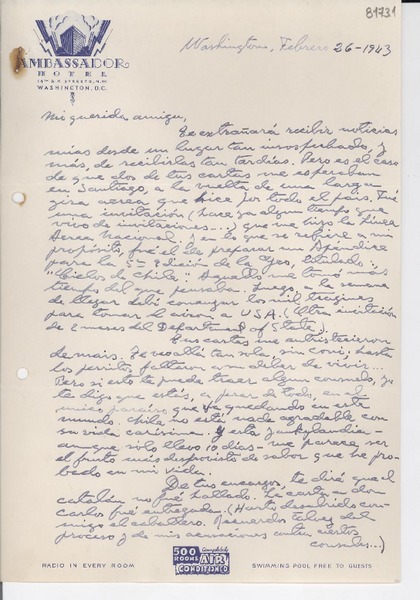 81731
AMBASSADOR
HOTEL
14TH & K STREETS, N.W.
WASHINGTON, D.C.
Washington, Febrero 26-1943
Mi querida amiga,
Te extrañará recibir noticias
mías desde un lugar tan insospechado, y
más, de recibirlas tan tardías. Pero es el caso
de que dos de tus cartas me esperaban
en Santiago, a la vuelta de una larga
gira aerea que hice por todo el país. Fué
una invitación (hace ya algún tiempo que
vivo de invitaciones...) que me hizo la Línea
Aerea Nacional. Y en lo que se refiere a mi
propósito, fué el de preparar un Apéndice
para la 5ª Edición de la Geo, titulado
"Cielos de Chile". Aquello me tomó más
tiempo del que pensaba. Luego, a la semana
de llegar debí comenzar los mil trajines
para tomar el avión a USA. (Otra invitación
de 2 meses del Department of State).
Tus cartas me entristecieron
de mais. Te tan sola, sin hasta
los perritos faltaron a vivir...
Pero si esto te puede traer algún consuelo, yo
te digo que estás, a pesar de todo, en el
único paraíso que va quedando en este
mundo. Chile no está nada agradable con
su vida carísima. Y esta Yankylandia—
aunque sólo llevo 10 días— me parece ser
el fruto más desprovisto de sabor que he pro-
bado en mi vida.
De tus encargos, te diré que el
catalán no fué hallado. La carta a don
Carlos fué entregada. (Harto desabrido con-
migo el caballero. Recuerdos talvez del
proceso y de mis actuaciones contra ciertos
consules...)
RADIO IN EVERY ROOM
500 ROOMS
Completely
AIR
CONDITIONED
SWIMMING POOL FREE TO GUESTS